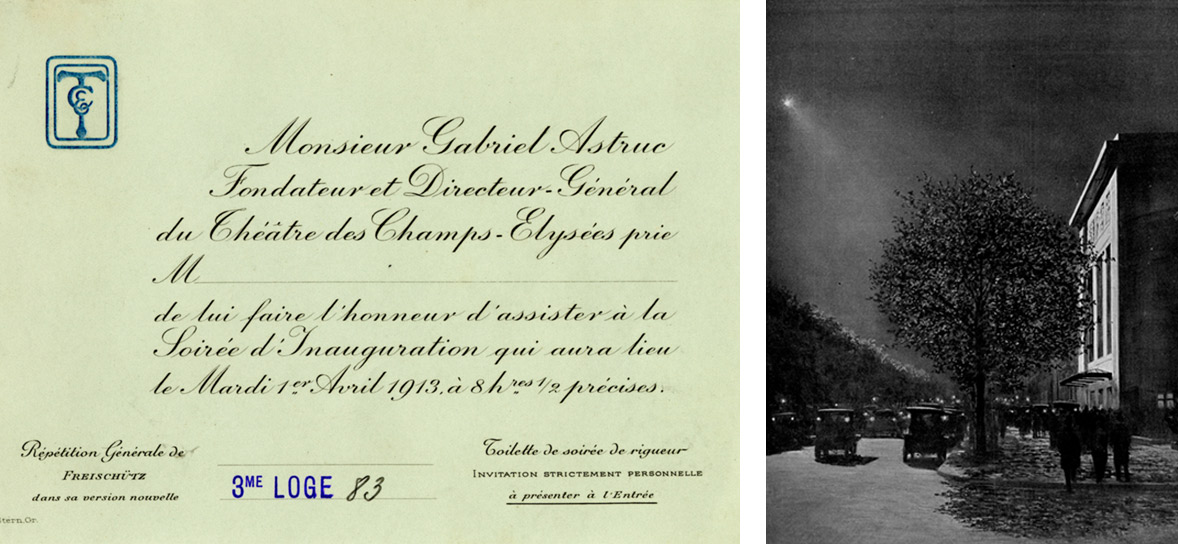 Monsieur Gabriel Astruc
Fondateur et Directeur-Général
du Théâtre des Champs-Elysées prie
M
de lui faire l'honneur d'assister à la
Soirée d'Inauguration qui aura lieu
le Mardi 1er Avril 1913, à 8 hres 1/2 précises.
Répétition Générale de
FREISCHÜTZ
dans sa version nouvelle
3ME LOGE 83
Toilette de soirée de rigueur
INVITATION STRICTEMENT PERSONNELLE
à présenter à l'Entrée